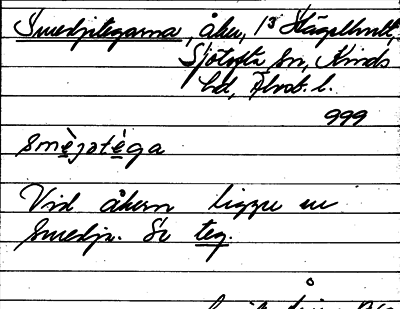 Smedjetegarna, åker, 13 Hägelhult,
Sjötofta sn, Kinds
hd, Älvsb. l.
999
smèjotéga
Vid åkern ligger en
smedja. Se teg.